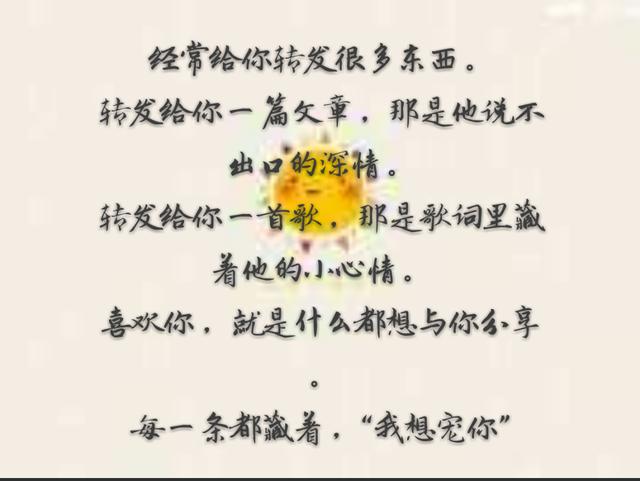 经常给你转发很多东西。
转发给你一篇文章，那是他说不
出口的深情。
转发给你一首歌，那是歌词里藏
着他的小心情。
喜欢你，就是什么都想与你分享
。
每一条都藏着，“我想宠你”